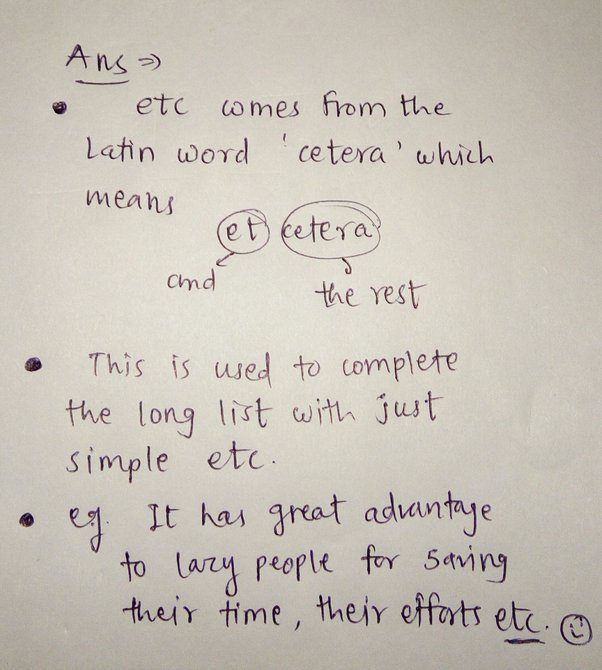 Ans ⇒
• etc comes from the
Latin word 'cetera' which
means
et cetera
and the rest
• This is used to complete
the long list with just
simple etc.
• eg. It has great advantage
to lazy people for saving
their time, their efforts etc. ☺